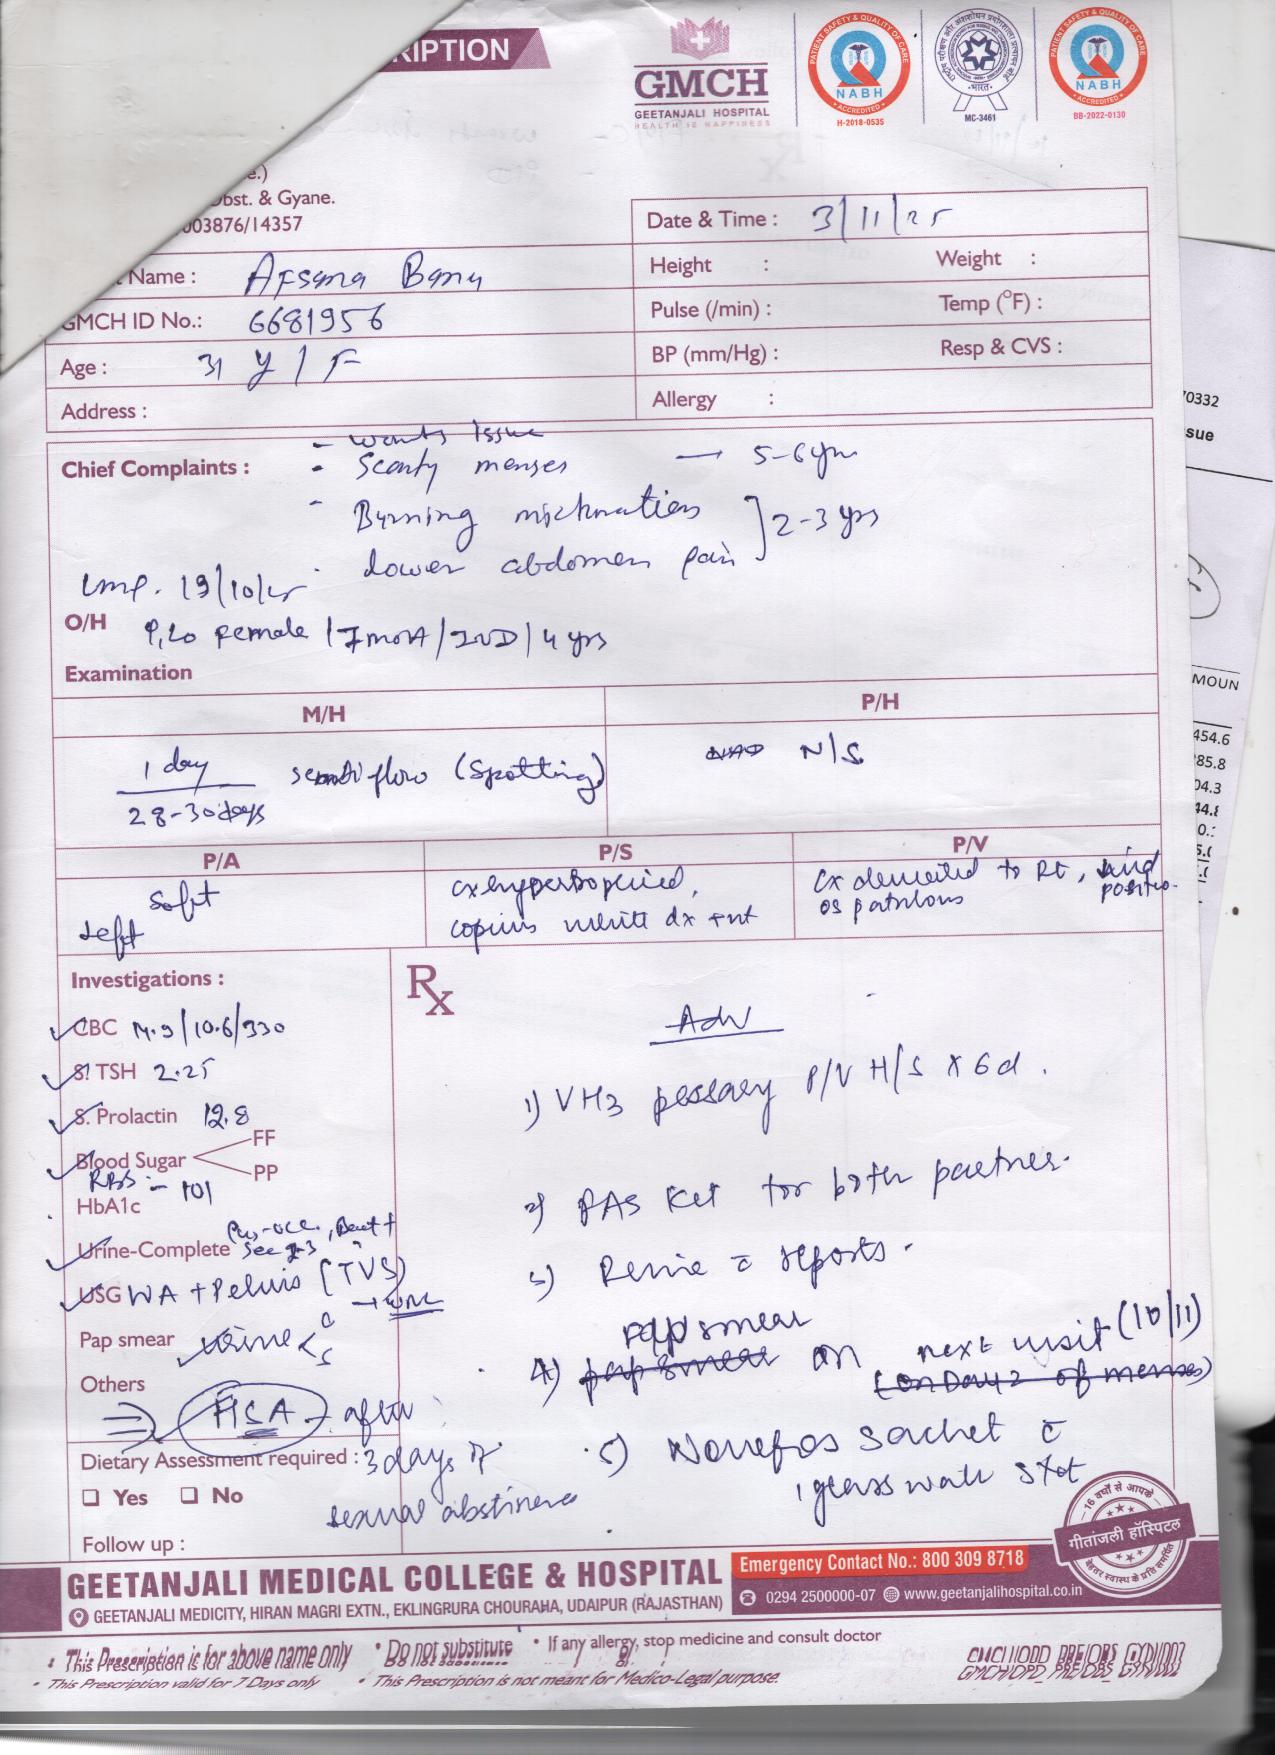 RIPTION
GMCH
GEETANJALI HOSPITAL
HEALTH IS HAPPINESS
PATIENT SAFETY & QUALITY OF CARE
NABH
ACCREDITED
H-2018-0535
भारत
MC-3461
PATIENT SAFETY & QUALITY OF CARE
NABH
ACCREDITED
BB-2022-0130
e.)
Obst. & Gyane.
003876/14357
Date & Time : 3/11/25
Name : Afsana Banu
Height : Weight :
GMCH ID No.: 6681956
Pulse (/min) : Temp (°F) :
Age : 31 Y / F
BP (mm/Hg) : Resp & CVS :
Address :
Allergy :
70332
sue
- wants Issue
Chief Complaints : - Scanty menses → 5-6 yrs
- Burning micturation
- Lower abdomen pain ] 2-3 yrs
LMP. 19/10/25
O/H P1L0 female / 7 mo / / 4 yrs
Examination
MOUN
M/H P/H
454.6
85.8
04.3
44.8
1 day
28-30 days
flow (Spotting)
N/S
P/A P/S P/V
Soft
Left
cx hypertrophied,
copius white dx +nt
cx deviated to Rt,
os patulous
Investigations :
Rx
Adv
CBC 10.6/330
S. TSH 2.25
S. Prolactin 12.8
Blood Sugar FF
PP
RBS :- 101
HbA1c
Urine-Complete Pus-occ., Bact +
USG WA + Pelvis (TVS)
Pap smear Urine < C
S
Others
HSA - after
Dietary Assessment required : 3 days of
sexual abstinence
Yes No
Follow up :
1) VH3 pessary P/V H/S x 6d.
2) FAS Kit for both partner.
3) Review c̄ reports.
4) pap smear pap smear on next visit (10/11)
(on Day 2 of menses)
5) Norefos sachet c̄
1 glass water stat
16 वर्षों से आपके
गीतांजली हॉस्पिटल
बेहतर स्वास्थ्य के प्रति समर्पित
GEETANJALI MEDICAL COLLEGE & HOSPITAL
GEETANJALI MEDICITY, HIRAN MAGRI EXTN., EKLINGRURA CHOURAHA, UDAIPUR (RAJASTHAN)
Emergency Contact No.: 800 309 8718
0294 2500000-07 www.geetanjalihospital.co.in
• This Prescription is for above name only • Do not substitute • If any allergy, stop medicine and consult doctor
• This Prescription valid for 7 Days only • This Prescription is not meant for Medico-Legal purpose.
GMCH/OPD_PRE/OBS_GYN/002